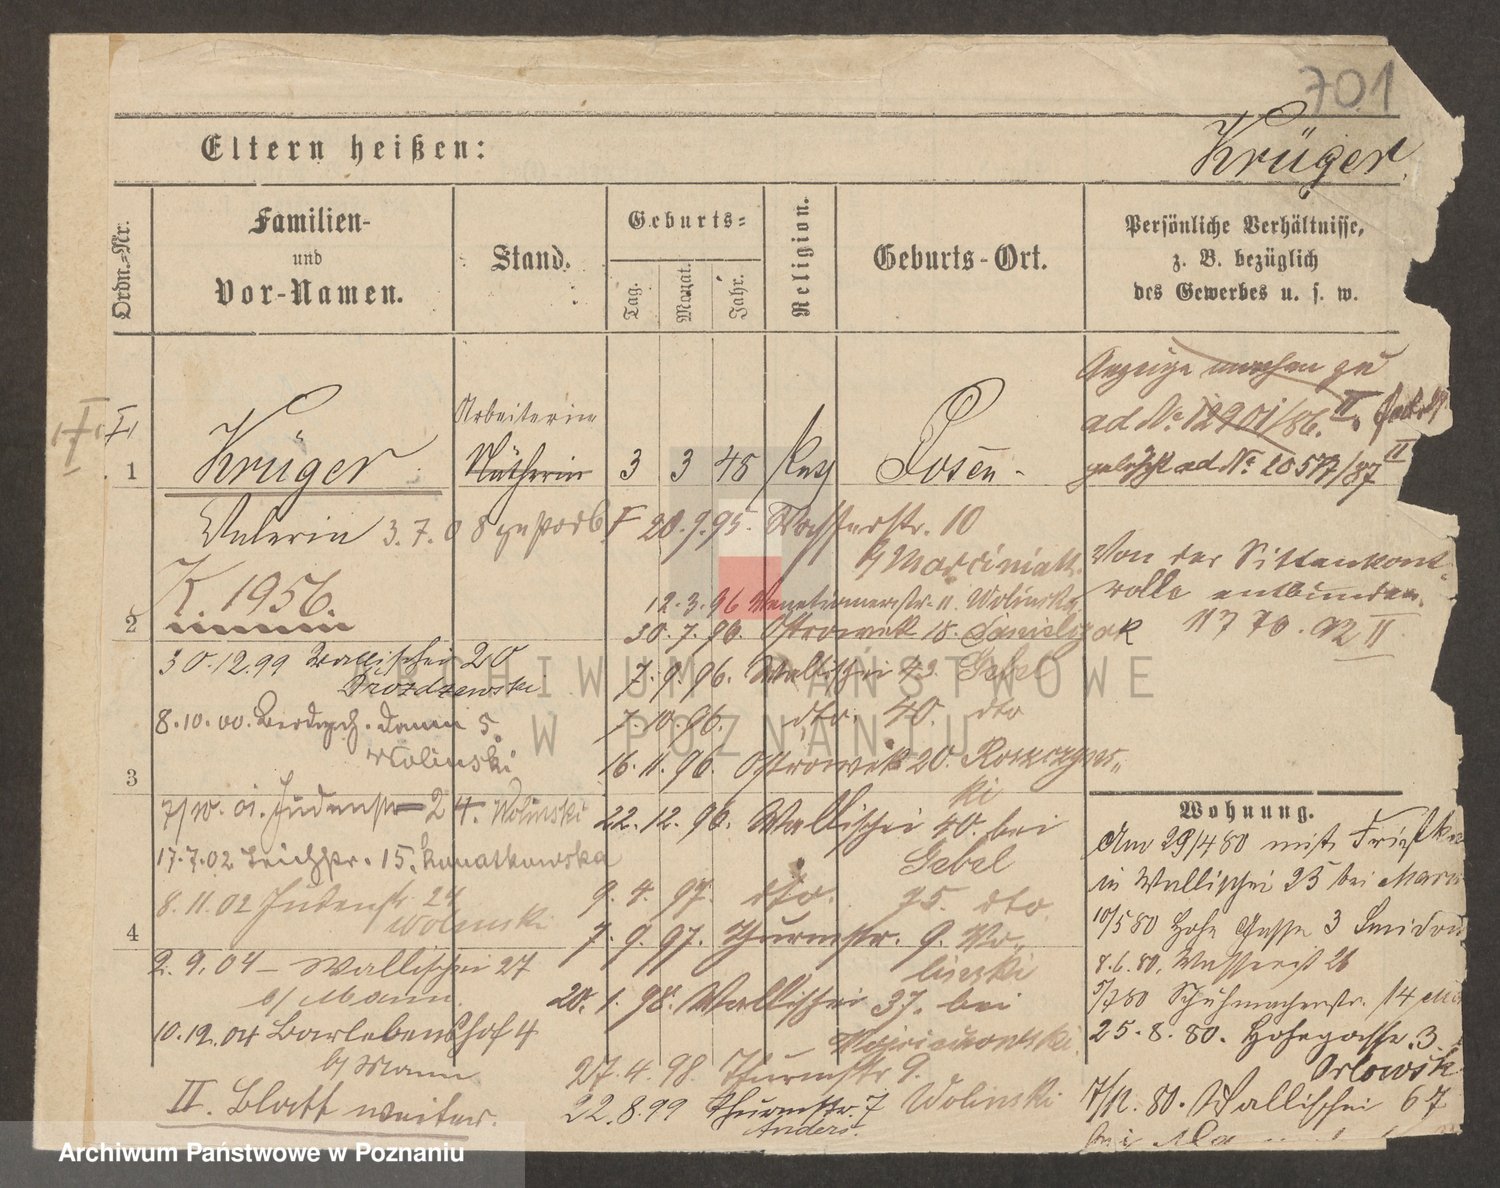 701
Krüger
Eltern heißen:
Ordn.-Nr.
Familien-
und
Vor-Namen.
Stand.
Geburts-
Tag.
Monat.
Jahr.
Religion.
Geburts-Ort.
Persönliche Verhältnisse,
z. B. bezüglich
des Gewerbes u. s. w.
Anzeige machen zu
ad No 12901/86. II.
gelöscht ad. No 20577/87 II
I
1
Krüger
Arbeiterin
Nätherin
3 3 45
Posen
Valeria 3.7.08 gestorb.
20.9.95. Wasserstr. 10
b/ Marciniak.
K. 1956.
12.3.96 Venetianerstr. 11. Wolinska
2
30.7.96. Ostrowek 18. Danielczak
Von der Sittenkont-
rolle entbunden.
1170.92 II
30.12.99 Wallischei 20
Drozdzewski
7.9.96. Wallischei 43 Gebel
8.10.00. Damm 5.
Wolinski
7.10.96. dto. 40. dto
3
16.11.96. Ostrowek 20.
ki
7/10.01. Judenstr 24. Wolinski
22.12.96. Wallischei 40. bei
Gebel
17.7.02 Teichstr. 15. Kwiatkowska
8.11.02 Judenstr 24
Wolinski
9.4.97. dto. 75. dto.
4
7.9.97. Thurmstr. 9. Wo-
linski
2.9.04 – Wallischei 27
b/ Mann.
20.1.98. Wallischei 37. bei
10.12.04 Barlebenshof 4
b/ Mann
27.4.98. Thurmstr 9.
Wolinski
II. Blatt weiter.
22.8.99 Thurmstr. 7
Anders.
Wohnung.
Am 29/4 80
in Wallischei 23 bei
10/5 80 Hohe Gasse 3
8.6.80. Wasserstr 26
5/7 80 Schuhmacherstr. 14
25.8.80. Hohegasse. 3.
Orlowsk
7/12.80. Wallischei 67
bei
ARCHIWUM PAŃSTWOWE
W POZNANIU
Archiwum Państwowe w Poznaniu